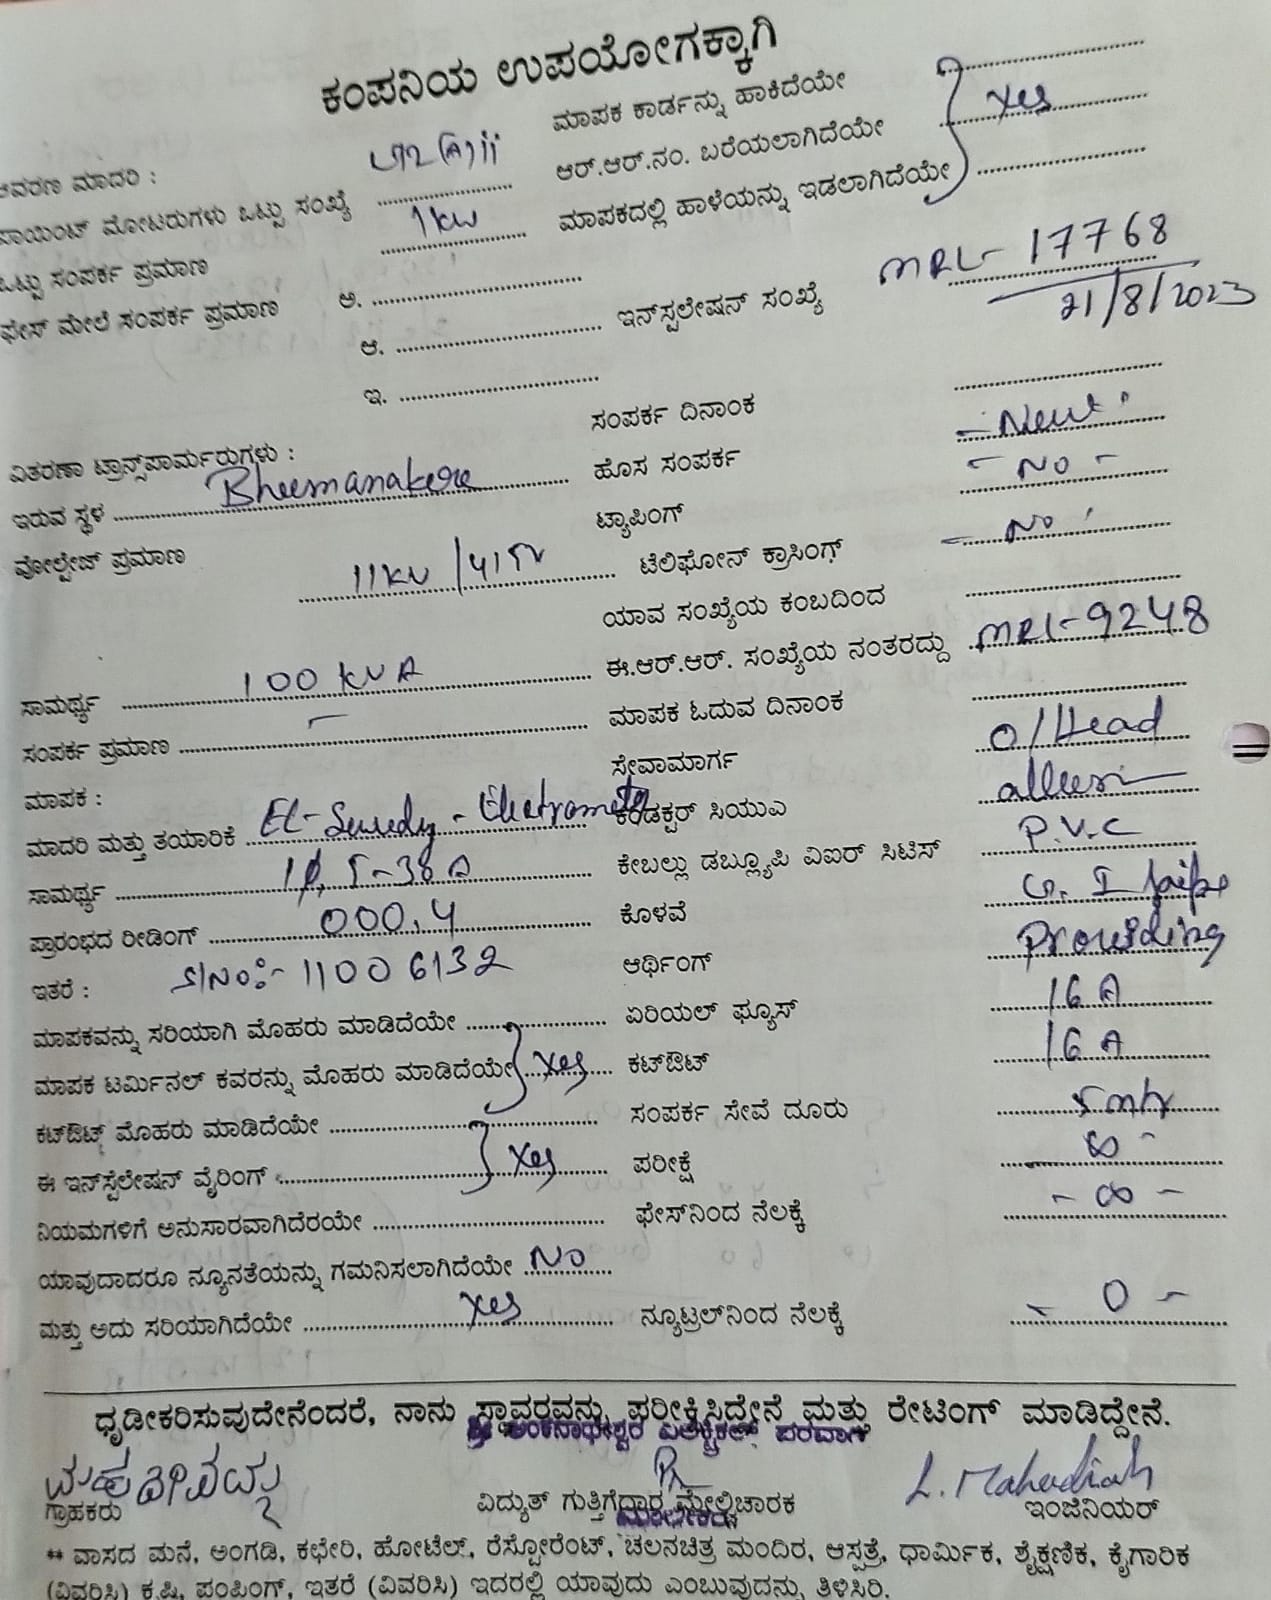 ಕಂಪನಿಯ ಉಪಯೋಗಕ್ಕಾಗಿ
ಆವರಣ ಮಾದರಿ : ಮಾಪಕ ಕಾರ್ಡನ್ನು ಹಾಕಿದೆಯೇ
ಪಾಯಿಂಟ್ ಮೋಟರುಗಳು ಒಟ್ಟು ಸಂಖ್ಯೆ (A) ii ಆರ್.ಆರ್.ನಂ. ಬರೆಯಲಾಗಿದೆಯೇ Yes
ಒಟ್ಟು ಸಂಪರ್ಕ ಪ್ರಮಾಣ 1 kw ಮಾಪಕದಲ್ಲಿ ಹಾಳೆಯನ್ನು ಇಡಲಾಗಿದೆಯೇ
ಫೇಸ್ ಮೇಲೆ ಸಂಪರ್ಕ ಪ್ರಮಾಣ ಅ.
ಆ. ಇನ್‌ಸ್ಟಲೇಷನ್ ಸಂಖ್ಯೆ MRL- 17768
21/8/2023
ಇ.
ಸಂಪರ್ಕ ದಿನಾಂಕ
ವಿತರಣಾ ಟ್ರಾನ್ಸ್‌ಪಾರ್ಮರುಗಳು :
ಇರುವ ಸ್ಥಳ Bheemanakere ಹೊಸ ಸಂಪರ್ಕ - New
ವೋಲ್ಟೇಜ್ ಪ್ರಮಾಣ 11KV / 415V ಟ್ಯಾಪಿಂಗ್ - NO -
ಟೆಲಿಫೋನ್ ಕ್ರಾಸಿಂಗ್ - No
ಯಾವ ಸಂಖ್ಯೆಯ ಕಂಬದಿಂದ
ಸಾಮರ್ಥ್ಯ 100 KVA ಈ.ಆರ್.ಆರ್. ಸಂಖ್ಯೆಯ ನಂತರದ್ದು MRL- 9248
ಸಂಪರ್ಕ ಪ್ರಮಾಣ - ಮಾಪಕ ಓದುವ ದಿನಾಂಕ
ಮಾಪಕ : ಸೇವಾಮಾರ್ಗ O/Head
ಮಾದರಿ ಮತ್ತು ತಯಾರಿಕೆ El- ಕಂಡಕ್ಟರ್ ಸಿಯುಎ
ಸಾಮರ್ಥ್ಯ 1ϕ, 5-30 A ಕೇಬಲ್ಲು ಡಬ್ಲ್ಯೂಪಿ ವಿಐಆರ್ ಸಿಟಿಸ್ P.V.C
ಪ್ರಾರಂಭದ ರೀಡಿಂಗ್ 000.4 ಕೊಳವೆ G. I pipe
ಇತರೆ : S/No:- 11006132 ಆರ್ಥಿಂಗ್ Prowiding
ಮಾಪಕವನ್ನು ಸರಿಯಾಗಿ ಮೊಹರು ಮಾಡಿದೆಯೇ ಏರಿಯಲ್ ಫ್ಯೂಸ್ 16 A
ಮಾಪಕ ಟರ್ಮಿನಲ್ ಕವರನ್ನು ಮೊಹರು ಮಾಡಿದೆಯೇ Yes ಕಟ್‌ಔಟ್ 16 A
ಕಟ್‌ಔಟ್ ಮೊಹರು ಮಾಡಿದೆಯೇ ಸಂಪರ್ಕ ಸೇವೆ ದೂರು 5 mtr
ಈ ಇನ್‌ಸ್ಟೆಲೇಷನ್ ವೈರಿಂಗ್ Yes ಪರೀಕ್ಷೆ ∞ -
ನಿಯಮಗಳಿಗೆ ಅನುಸಾರವಾಗಿದೆರಯೇ ಫೇಸ್‌ನಿಂದ ನೆಲಕ್ಕೆ - ∞ -
ಯಾವುದಾದರೂ ನ್ಯೂನತೆಯನ್ನು ಗಮನಿಸಲಾಗಿದೆಯೇ No
ಮತ್ತು ಅದು ಸರಿಯಾಗಿದೆಯೇ Yes ನ್ಯೂಟ್ರಲ್‌ನಿಂದ ನೆಲಕ್ಕೆ - 0 -
ಧೃಡೀಕರಿಸುವುದೇನೆಂದರೆ, ನಾನು ಸ್ಥಾವರವನ್ನು ಪರೀಕ್ಷಿಸಿದ್ದೇನೆ ಮತ್ತು ರೇಟಿಂಗ್ ಮಾಡಿದ್ದೇನೆ.
L. Mahadiah
ಗ್ರಾಹಕರು ವಿದ್ಯುತ್ ಗುತ್ತಿಗೆದಾರ ಮೇಲ್ವಿಚಾರಕ ಇಂಜಿನಿಯರ್
** ವಾಸದ ಮನೆ, ಅಂಗಡಿ, ಕಛೇರಿ, ಹೋಟೆಲ್, ರೆಸ್ಟೋರೆಂಟ್, ಚಲನಚಿತ್ರ ಮಂದಿರ, ಆಸ್ಪತ್ರೆ, ಧಾರ್ಮಿಕ, ಶೈಕ್ಷಣಿಕ, ಕೈಗಾರಿಕ
(ವಿವರಿಸಿ) ಕೃಷಿ, ಪಂಪಿಂಗ್, ಇತರೆ (ವಿವರಿಸಿ) ಇದರಲ್ಲಿ ಯಾವುದು ಎಂಬುವುದನ್ನು ತಿಳಿಸಿರಿ.